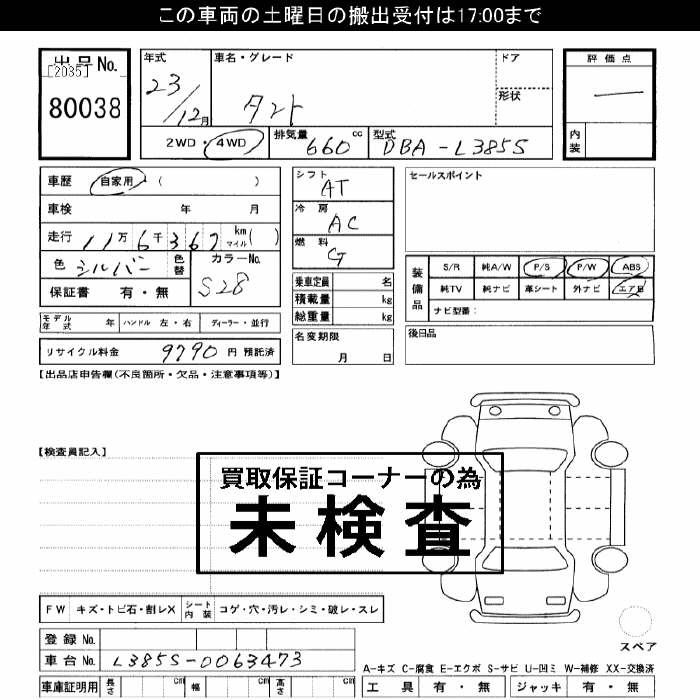 この車両の土曜日の搬出受付は17:00まで
出品No.
[2035]
80038
年式
23/12月
車名・グレード
タント
ドア
形状
評価点
—
内装
2WD・4WD
排気量 660 cc
型式 DBA-L385S
車歴 自家用・( )
車検 年 月
走行 11万6千367 km マイル( )
色 シルバー 色替
カラーNo. S28
保証書 有・無
シフト AT
冷房 AC
燃料 G
乗車定員 名
積載量 kg
総重量 kg
セールスポイント
装備品
S/R 純A/W P/S P/W ABS
純TV 純ナビ 革シート 外ナビ エアB
ナビ型番:
モデル年式 年 ハンドル 左・右 ディーラー・並行
リサイクル料金 9790 円 預託済
名変期限
月 日
後日品
【出品店申告欄(不良箇所・欠品・注意事項等)】
【検査員記入】
買取保証コーナーの為
未検査
FW キズ・トビ石・割レX シート内装 コゲ・穴・汚レ・シミ・破レ・スレ
スペア
登録No.
車台No. L385S-0063473
A-キズ C-腐食 E-エクボ S-サビ U-凹ミ W-補修 XX-交換済
車庫証明用 長さ cm 幅 cm 高さ cm
工具 有・無 ジャッキ 有・無